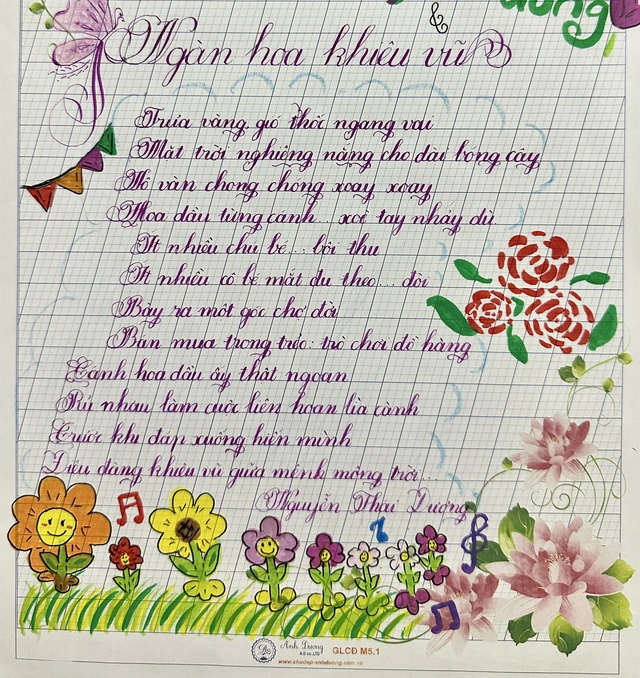 ương
Ngàn hoa khiêu vũ
Trưa vàng gió thốc ngang vai
Mặt trời nghiêng nắng cho dài bóng cây
Mơ vàn chong chóng xoay xoay
Hoa dầu từng cánh... xoè tay nhảy dù
Ít nhiều chú bé... bội thu
Ít nhiều cô bé mặt đu theo... đòi
Bày ra một góc chợ đời
Bán mua trong trẻo: trò chơi đồ hàng
Cánh hoa dầu ấy thật ngoan
Rủ nhau làm cuộc liên hoan lìa cành
Trước khi đáp xuống hiện mình
Dịu dàng khiêu vũ giữa mênh mông trời...
Nguyễn Thái Dương
Ánh Dương
A.D co.,LTD
GLCĐ M5.1
www.chudep-anhduong.com.vn